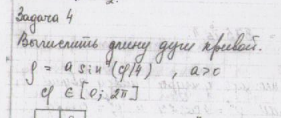 Задача 4
Вычислить длину дуги кривой.
ρ = a sin (φ/4) , a>0
φ ∈ [0; 2π]